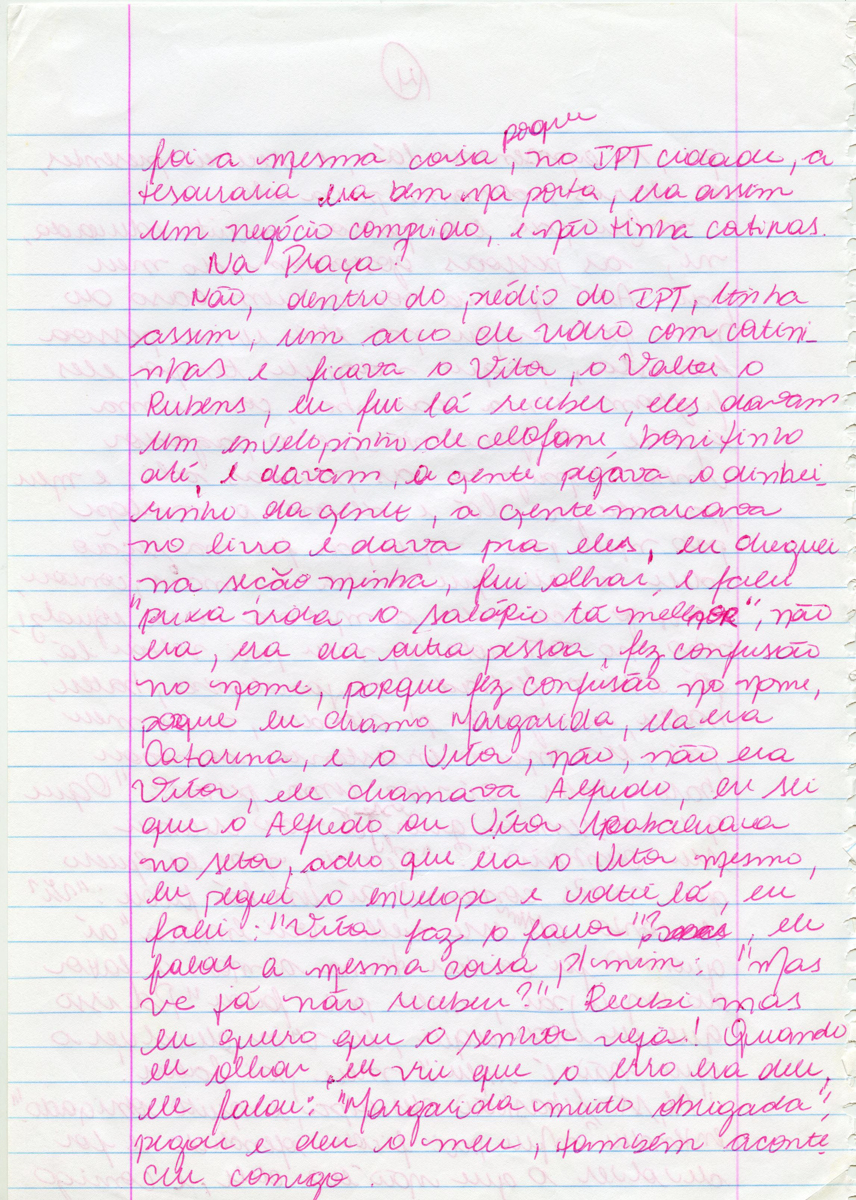 14
foi a mesma coisa, porque no IPT cidade, a
tesouraria era bem na porta, era assim
um negócio comprido, e não tinha catinas.
Na Praça?
Não, dentro do prédio do IPT, tinha
assim, um arco de vidro com catini-
nhas e ficava o Vitor, o Valter o
Rubens, eu fui lá receber, eles davam
um envelopinho de celofane bonitinho
até, e davam, a gente pegava o dinhei-
rinho da gente, a gente marcava
no livro e dava pra eles, eu cheguei
na seção minha, fui olhar, e falei
"puxa vida o salário tá melhor", não
era, era da outra pessoa, fez confusão
no nome, porque fez confusão no nome,
porque eu chamo Margarida, ela era
Catarina, e o Vitor, não, não era
Vitor, ele chamava Alfredo, eu sei
que o Alfredo ou Vitor trabalhava
no setor, acho que era o Vitor mesmo,
eu peguei o envelope e voltei lá, eu
falei: "Vitor faz o favor"?, ele
falou a mesma coisa p/ mim: "Mas
vc já não recebeu?". Recebi mas
eu quero que o senhor veja! Quando
ele olhou, ele viu que o erro era deu,
ele falou: "Margarida muito obrigada",
pegou e deu o meu, também aconte-
ceu comigo.